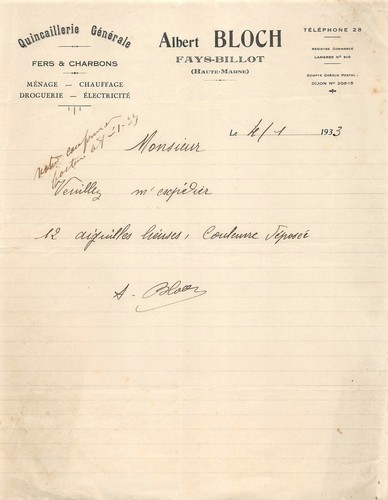 Quincaillerie Générale
FERS & CHARBONS
MÉNAGE — CHAUFFAGE
DROGUERIE — ÉLECTRICITÉ
Albert BLOCH
FAYS-BILLOT
(HAUTE-MARNE)
TÉLÉPHONE 28
REGISTRE COMMERCE
LANGRES N° 910
COMPTE CHÈQUE POSTAL
DIJON N° 208-15
Le 4/1 1933
Monsieur
Veuillez m'expédier
12 aiguilles lieuses, Couleuvre déposée
A. Bloch